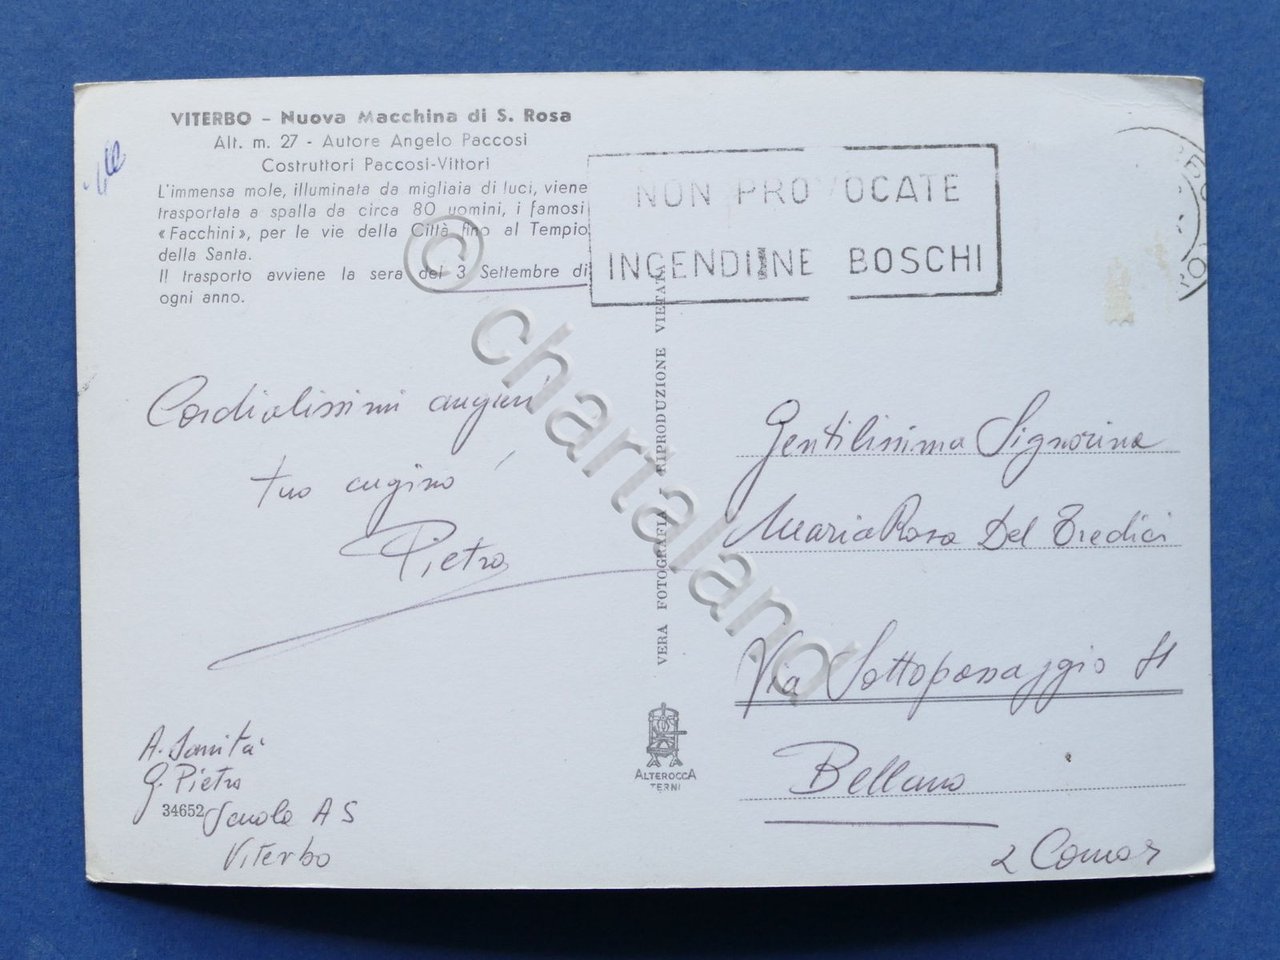 VITERBO - Nuova Macchina di S. Rosa
Alt. m. 27 - Autore Angelo Paccosi
Costruttori Paccosi-Vittori
L'immensa mole, illuminata da migliaia di luci, viene
trasportata a spalla da circa 80 uomini, i famosi
«Facchini», per le vie della Città fino al Tempio
della Santa.
Il trasporto avviene la sera del 3 Settembre di
ogni anno.
NON PROVOCATE
INCENDI NE BOSCHI
Cordialissimi auguri
tuo cugino
Pietro
A. Sanità
G. Pietro
34652 Scuola A S
Viterbo
VERA FOTOGRAFIA - RIPRODUZIONE VIETATA
ALTEROCCA
TERNI
Gentilissima Signorina
Maria Rosa Del Tredici
Via Sottopassaggio
Bellano
(Como)
© chartaland